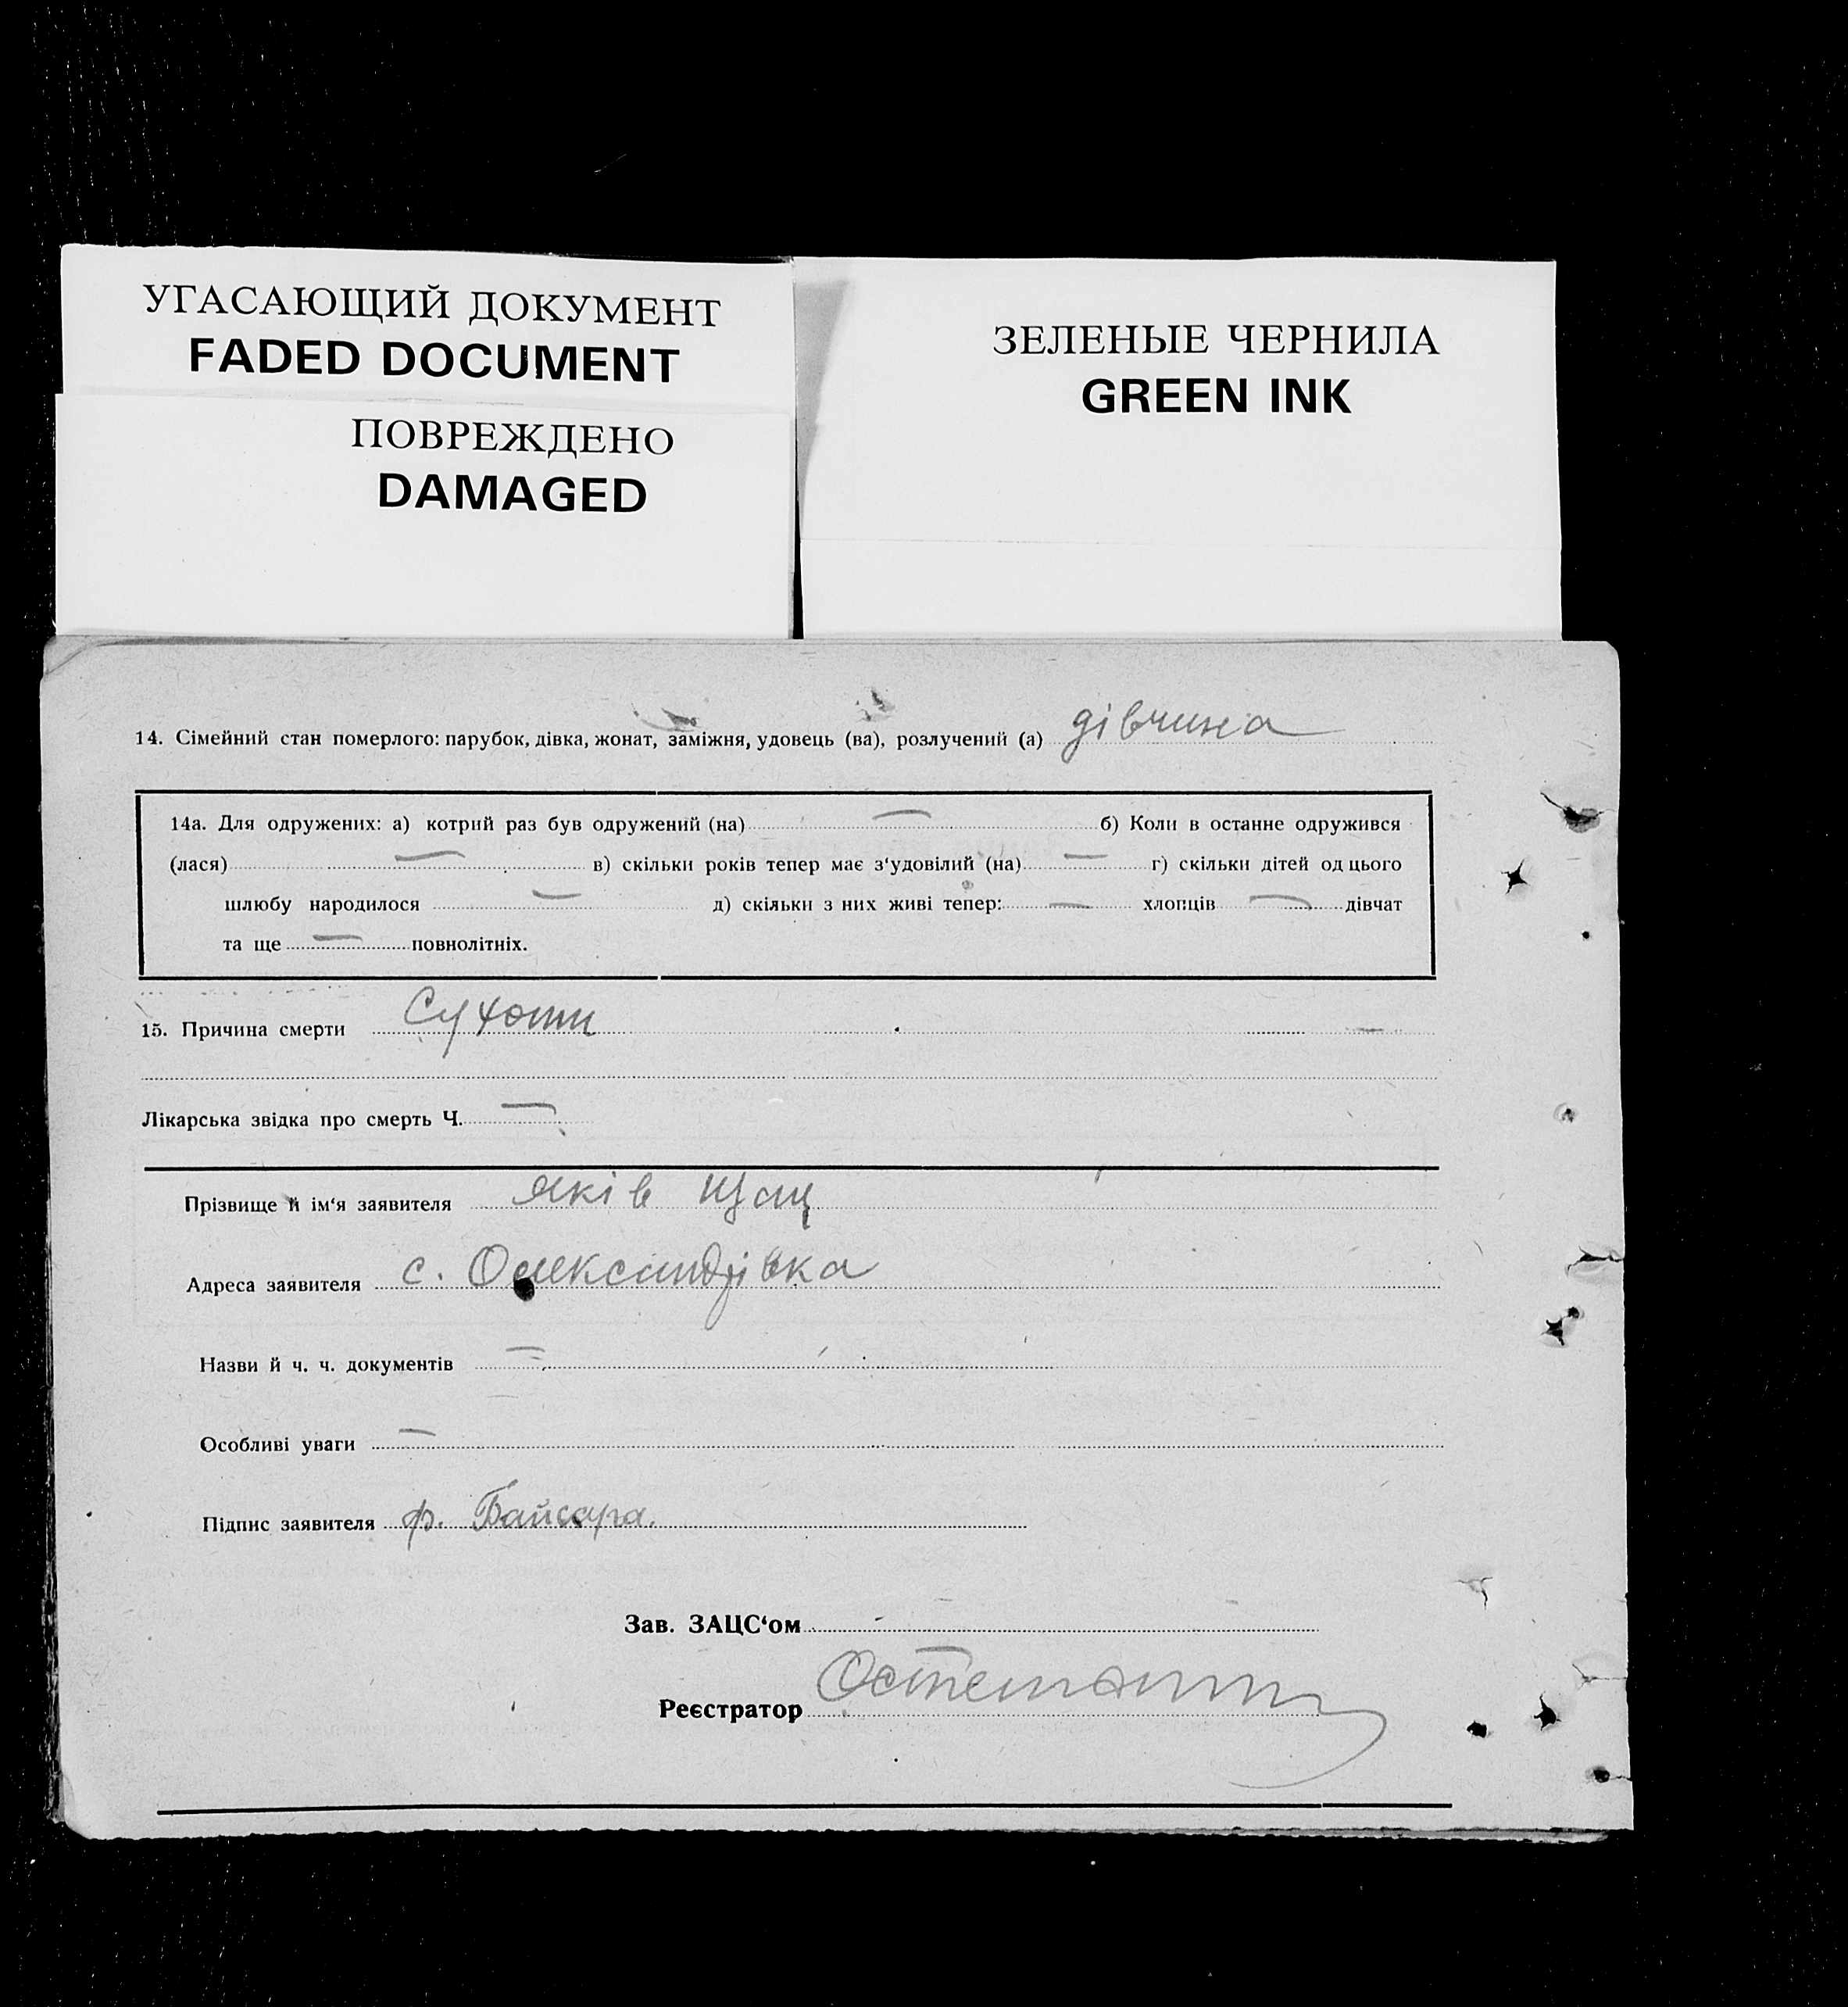 УГАСАЮЩИЙ ДОКУМЕНТ
FADED DOCUMENT
ПОВРЕЖДЕНО
DAMAGED
ЗЕЛЕНЫЕ ЧЕРНИЛА
GREEN INK
14. Сімейний стан померлого: парубок, дівка, жонат, заміжня, удовець (ва), розлучений (а) дівчина
14а. Для одружених: а) котрий раз був одружений (на) — б) Коли в останне одружився
(лася) — в) скільки років тепер має з‘удовілий (на) — г) скільки дітей од цього
шлюбу народилося — д) скільки з них живі тепер: — хлопців — дівчат
та ще — повнолітніх.
15. Причина смерти Сухоти
Лікарська звідка про смерть Ч. —
Прізвище й ім‘я заявителя Яків
Адреса заявителя с. Олександрівка
Назви й ч. ч. документів —
Особливі уваги —
Підпис заявителя ф.
Зав. ЗАЦС‘ом
Реєстратор